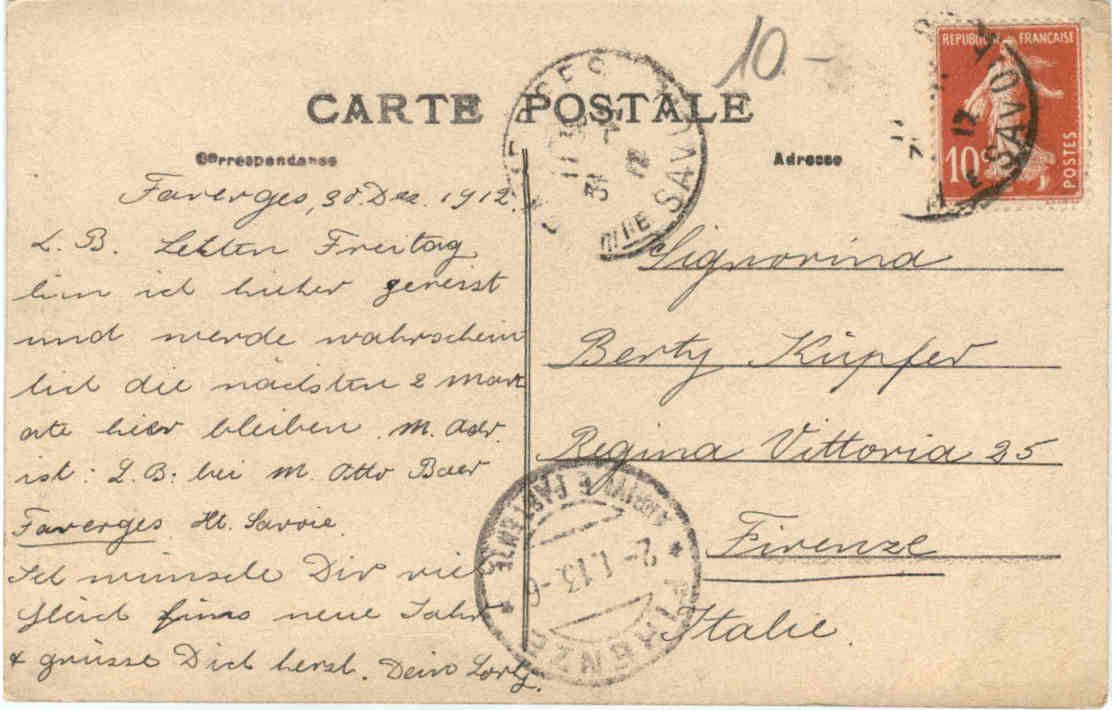 10.-
CARTE POSTALE
Correspondance
Adresse
REPUBLIQUE FRANÇAISE
10c
POSTES
FAVERGES
31
12
HTE SAVOIE
Faverges, 30 Dez. 1912.
L. B. Letzten Freitag
bin ich hieher gereist
und werde wahrschein
lich die nächsten 2 Mon
ate hier bleiben. M. Adr.
ist: L. B: bei M. Otto Baer
Faverges Ht. Savoie.
Ich wünsche Dir viel
Glück fürs neue Jahr
& grüsse Dich herzl. Dein
Signorina
Berty Küpfer
Regina Vittoria 25
Firenze
Italie.
ARRIVI E PARTENZE
2-1.13-6
FIRENZE